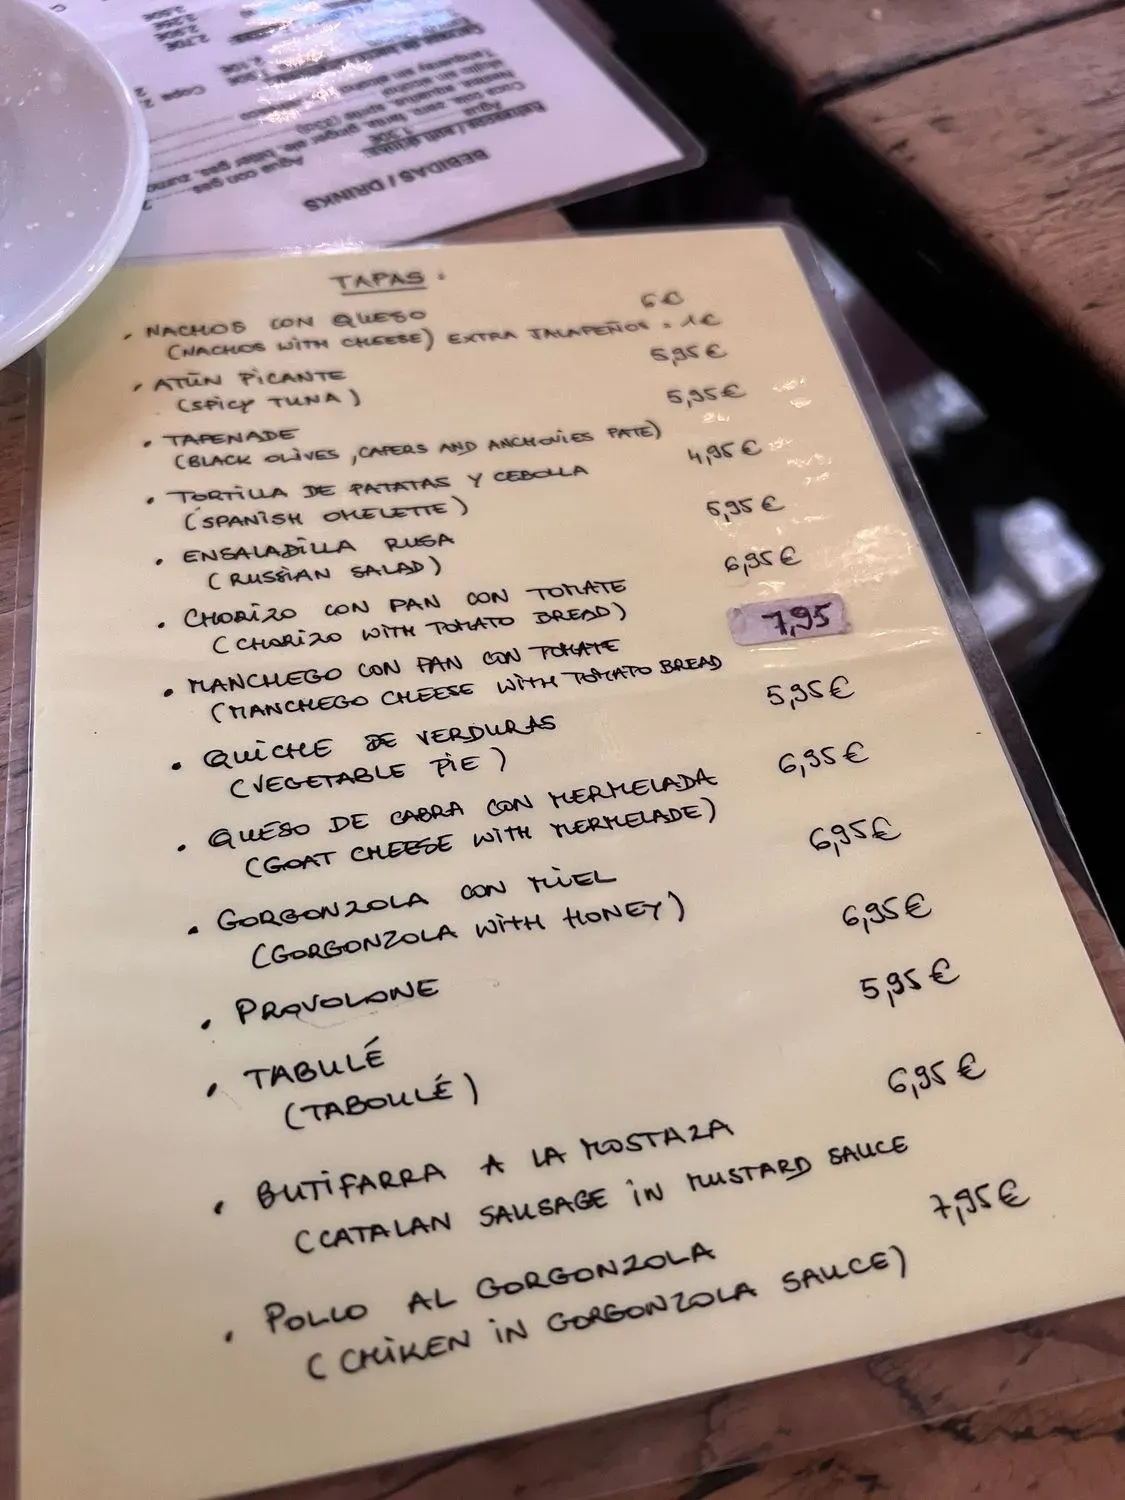 BEBIDAS / DRINKS
Agua con gas
TAPAS:
• NACHOS CON QUESO 6€
(NACHOS WITH CHEESE) EXTRA JALAPEÑOS = 1€
• ATÚN PICANTE 5,95€
(SPICY TUNA)
• TAPENADE 5,95€
(BLACK OLIVES, CAPERS AND ANCHOVIES PATE)
• TORTILLA DE PATATAS Y CEBOLLA 4,95€
(SPANISH OMELETTE)
• ENSALADILLA RUSA 5,95€
(RUSSIAN SALAD)
• CHORIZO CON PAN CON TOMATE 6,95€
(CHORIZO WITH TOMATO BREAD)
• MANCHEGO CON PAN CON TOMATE 7,95
(MANCHEGO CHEESE WITH TOMATO BREAD
• QUICHE DE VERDURAS 5,95€
(VEGETABLE PIE)
• QUESO DE CABRA CON MERMELADA 6,95€
(GOAT CHEESE WITH MERMELADE)
• GORGONZOLA CON MIEL 6,95€
(GORGONZOLA WITH HONEY)
• PROVOLONE 6,95€
• TABULÉ 5,95€
(TABOULÉ)
• BUTIFARRA A LA MOSTAZA 6,95€
(CATALAN SAUSAGE IN MUSTARD SAUCE
• POLLO AL GORGONZOLA 7,95€
(CHIKEN IN GORGONZOLA SAUCE)